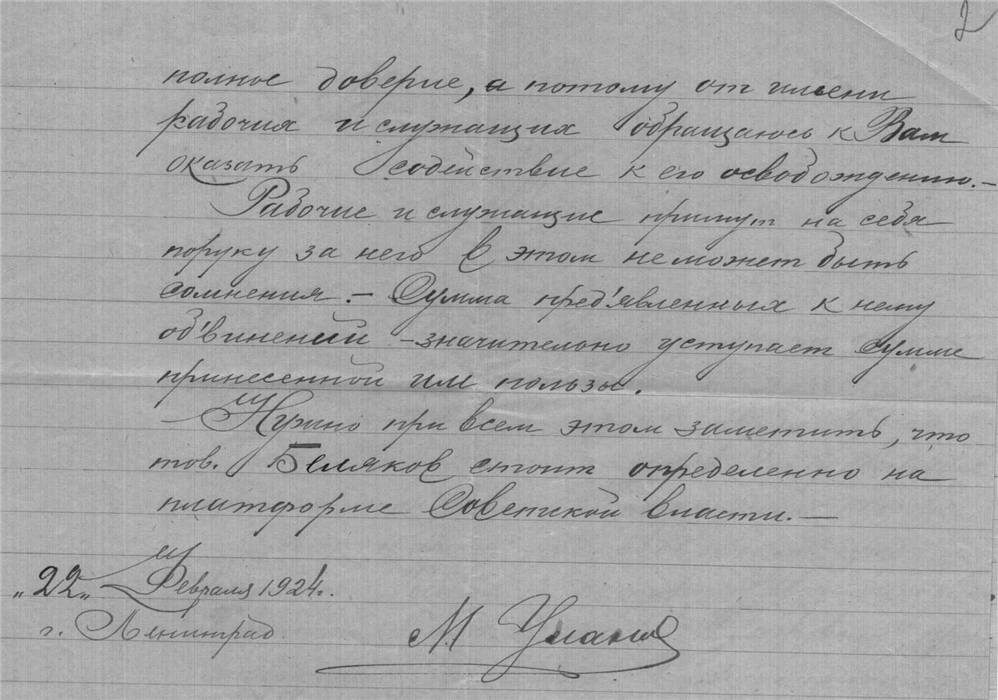 2
полное доверие, а потому от имени
рабочих и служащих обращаюсь к Вам
оказать содействие к его освобождению.—
Рабочие и служащие примут на себя
поруку за него в этом не может быть
сомнения.— Сумма пред'явленных к нему
об'винений — значительно уступает сумме
принесенной им пользы.
Нужно при всем этом заметить, что
тов. Беляков стоит определенно на
платформе Советской власти.—
"22" Февраля 1924г.
г. Ленинград.
М.